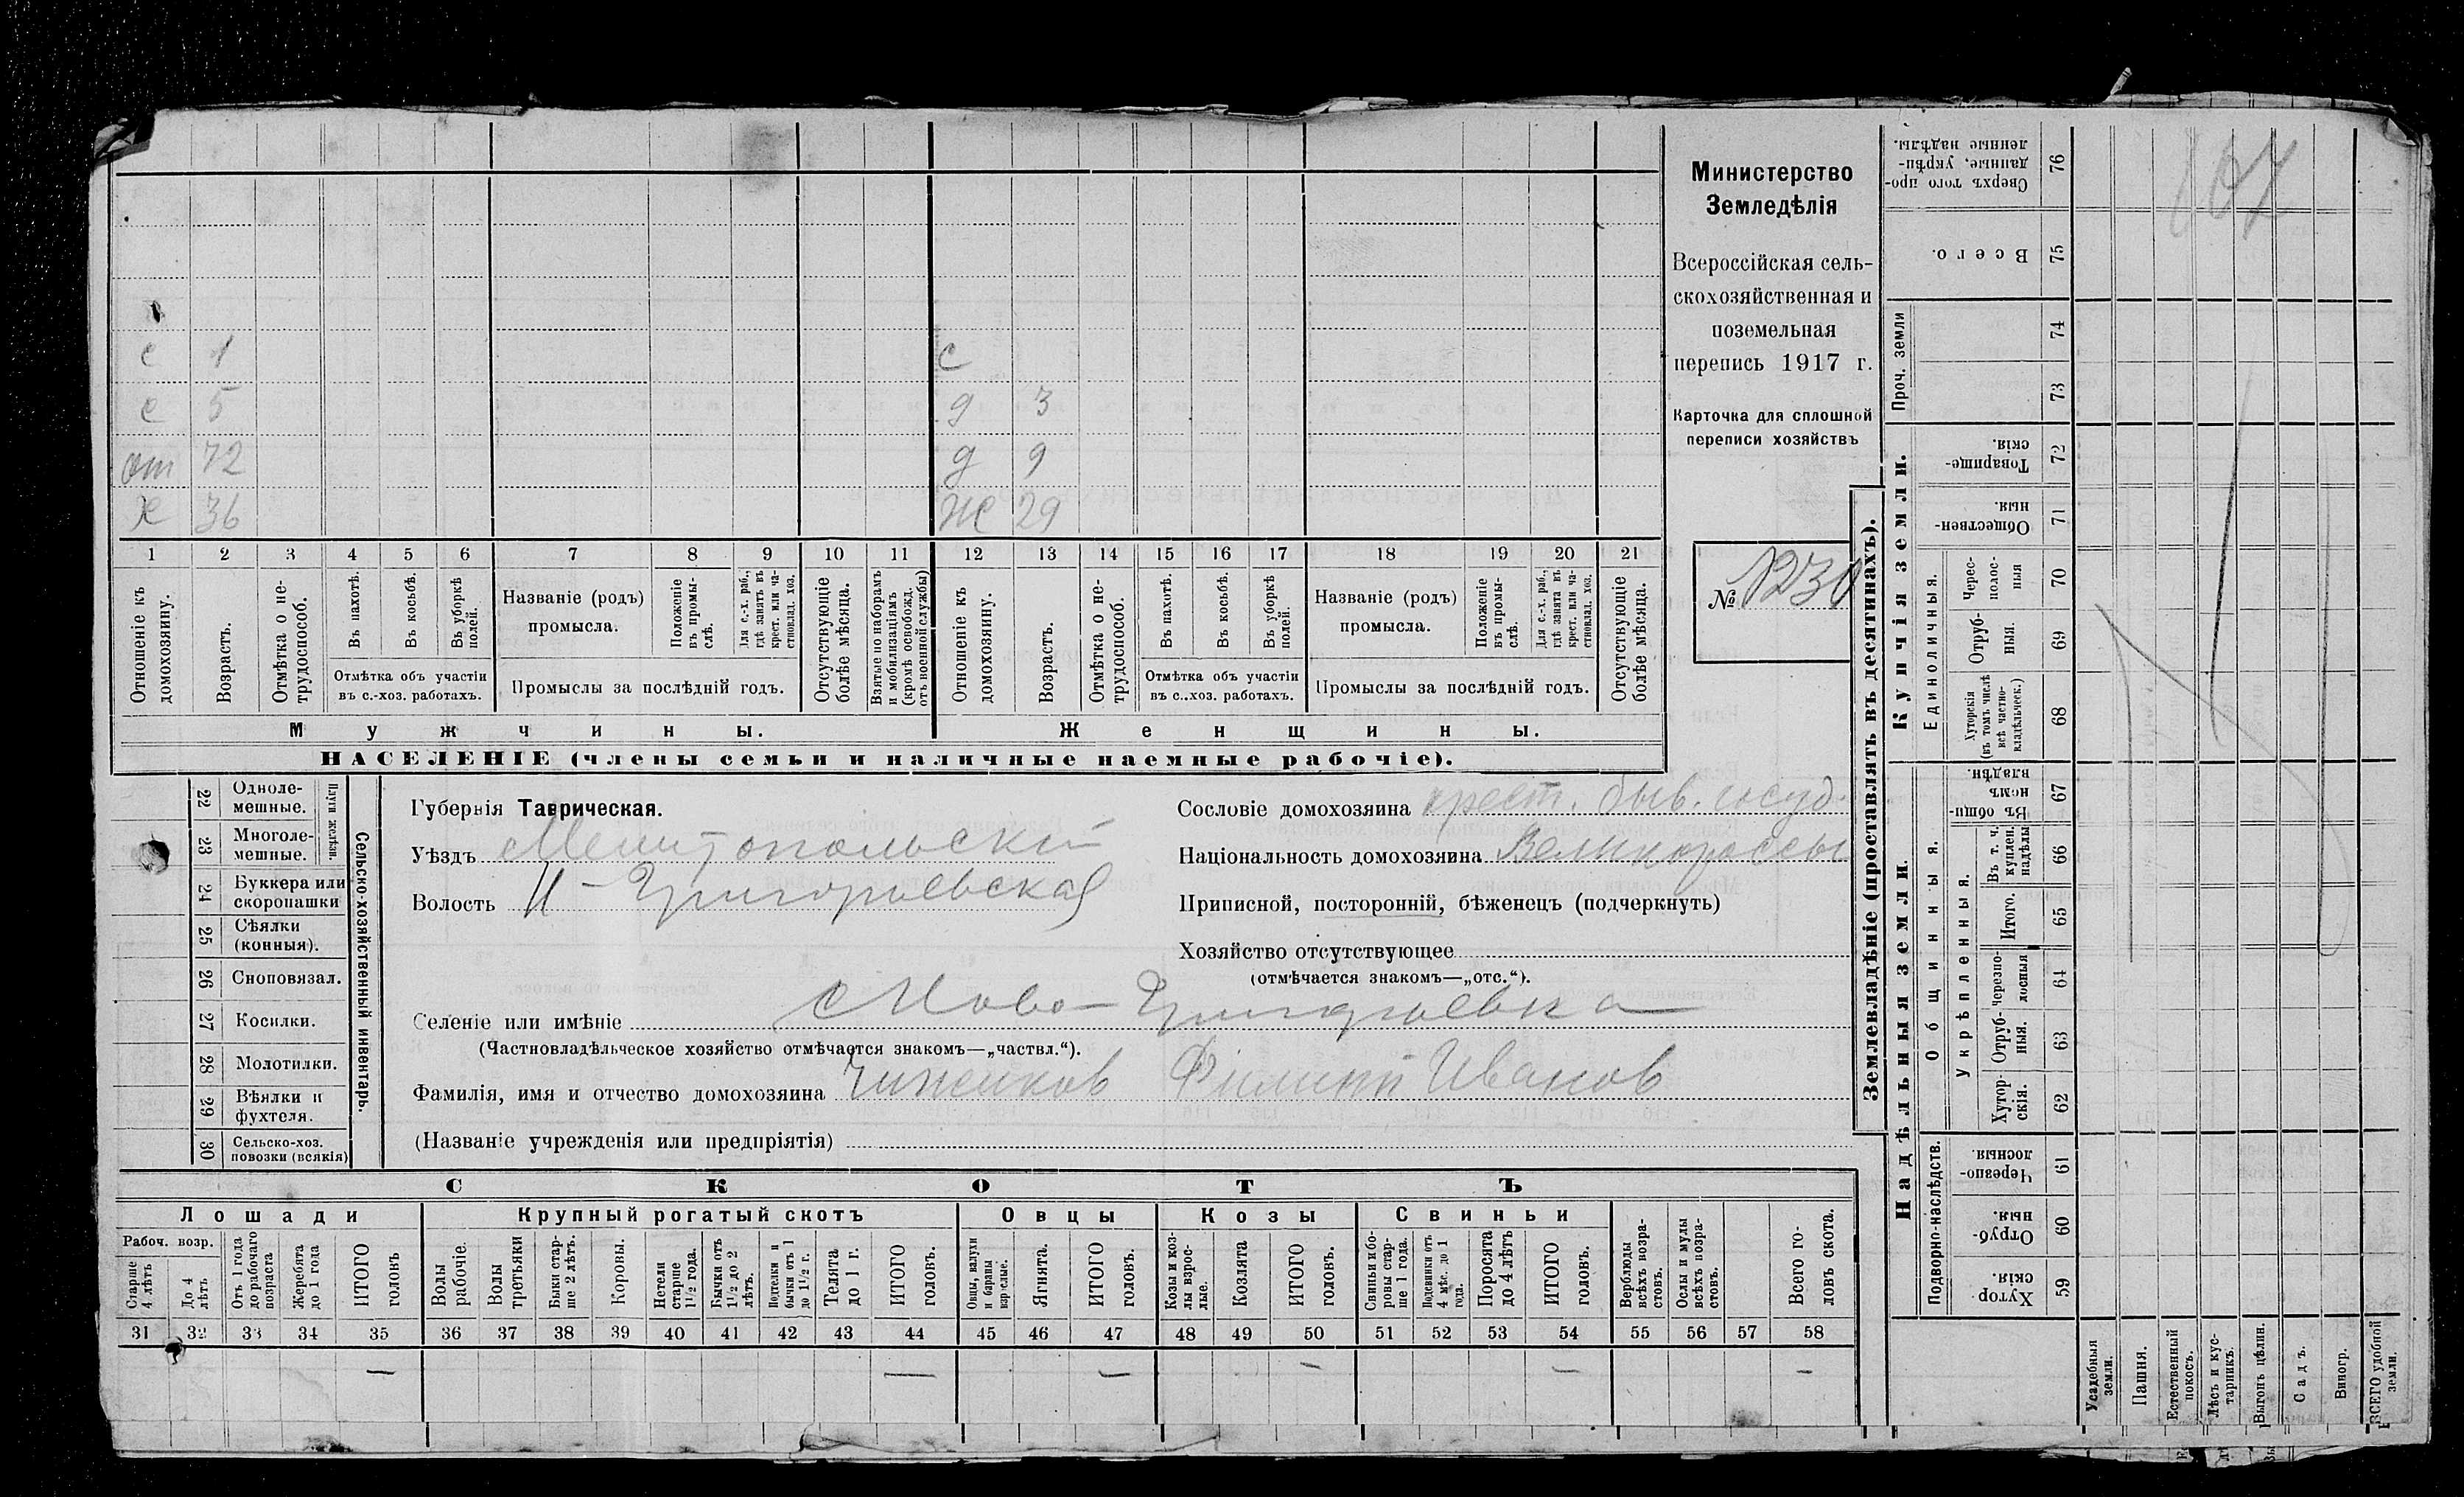 Министерство
Земледѣлія
Всероссійская сель-
скохозяйственная и
поземельная
перепись 1917 г.
Карточка для сплошной
переписи хозяйствъ
№ 1230
с 1 с
с 5 д 3
от 72 д 9
х 36 ж 29
1 2 3 4 5 6 7 8 9 10 11 12 13 14 15 16 17 18 19 20 21
Отношеніе къ домохозяину.
Возрастъ.
Отмѣтка о не-трудоспособ.
Въ пахотѣ.
Въ косьбѣ.
Въ уборкѣ полей.
Отмѣтка объ участіи
въ с.-хоз. работахъ.
Названіе (родъ)
промысла.
Положеніе въ промы-слѣ.
Для с.-х. раб., гдѣ занятъ въ крест. или ча-стновлад. хоз.
Промыслы за послѣдній годъ.
Отсутствующіе болѣе мѣсяца.
Взятые по наборамъ и мобилизаціямъ (кромѣ освобожд. отъ военной службы)
Отношеніе къ домохозяину.
Возрастъ.
Отмѣтка о не-трудоспособ.
Въ пахотѣ.
Въ косьбѣ.
Въ уборкѣ полей.
Отмѣтка объ участіи
въ с..хоз. работахъ.
Названіе (родъ)
промысла.
Положеніе въ промы-слѣ.
Для с.-х. раб., гдѣ занята въ крест. или ча-стновлад. хоз.
Промыслы за послѣдній годъ.
Отсутствующіе болѣе мѣсяца.
Мужчины. Женщины.
НАСЕЛЕНІЕ (члены семьи и наличные наемные рабочіе).
22 Одноле-мешные.
23 Многоле-мешные.
Плуги желѣзн.
24 Буккера или скоропашки
25 Сѣялки (конныя).
26 Сноповязал.
27 Косилки.
28 Молотилки.
29 Вѣялки и фухтеля.
30 Сельско-хоз. повозки (всякія)
Сельско-хозяйственный инвентарь.
Губернія Таврическая.
Уѣздъ Мелитопольскій
Волость Н-Григорьевская
Сословіе домохозяина крест. быв. госуд.
Національность домохозяина Великороссы
Приписной, посторонній, бѣженецъ (подчеркнуть)
Хозяйство отсутствующее
(отмѣчается знакомъ—„отс.“).
Селеніе или имѣніе с Ново-Григорьевка
(Частновладѣльческое хозяйство отмѣчается знакомъ—„частвл.“).
Фамилія, имя и отчество домохозяина Чижиков Филипп Иванов
(Названіе учрежденія или предпріятія)
СКОТЪ
Лошади Крупный рогатый скотъ Овцы Козы Свиньи
Рабоч. возр.
Старше 4 лѣтъ
До 4 лѣтъ
Отъ 1 года до рабочаго возраста
Жеребята до 1 года
ИТОГО головъ
Волы рабочіе.
Волы третьяки
Быки стар-ше 2 лѣтъ.
Коровы.
Нетели старше 1½ года.
Бычки отъ 1½ до 2 лѣтъ.
Подтелки и бычки отъ 1 до 1½ г.
Телята до 1 г.
ИТОГО головъ.
Овцы, валухи и бараны взрослые.
Ягнята.
ИТОГО головъ.
Козы и коз-лы взрос-лые.
Козлята
ИТОГО головъ.
Свиньи и бо-ровы стар-ше 1 года.
Подсвинки отъ 4 мѣс. до 1 года.
Поросята до 4 лѣтъ
ИТОГО головъ.
Верблюды всѣхъ возра-стовъ.
Ослы и мулы всѣхъ возра-стовъ.
Всего го-ловъ скота.
31 32 33 34 35 36 37 38 39 40 41 42 43 44 45 46 47 48 49 50 51 52 53 54 55 56 57 58
— — — — — —
Землевладѣніе (проставлять въ десятинахъ).
Купчія земли.
Надѣльныя земли.
Сверхъ того про-данные, укрѣп-ленные надѣлы. 76
Всего. 75
Проч. земли
74
73
Товарище-скія. 72
Обществен-ныя. 71
Единоличныя.
Черес-полос-ныя 70
Отруб-ныя. 69
Хуторскія (въ томъ числѣ всѣ частно-владѣльческ.) 68
Общинныя.
Въ общи номъ владѣн. 67
Укрѣпленныя.
Въ т. ч. куплен. надѣлы 66
Итого. 65
Черезпо-лосныя 64
Отруб-ныя. 63
Хутор-скія. 62
Подворно-наслѣдств.
Черезпо-лосныя. 61
Отруб-ныя. 60
Хутор-скія. 59
Усадебныя земли.
Пашня.
Естественный покосъ.
Лѣсъ и кус-тарникъ.
Выгонъ цѣлин.
Садъ.
Виногр.
ВСЕГО удобной земли.